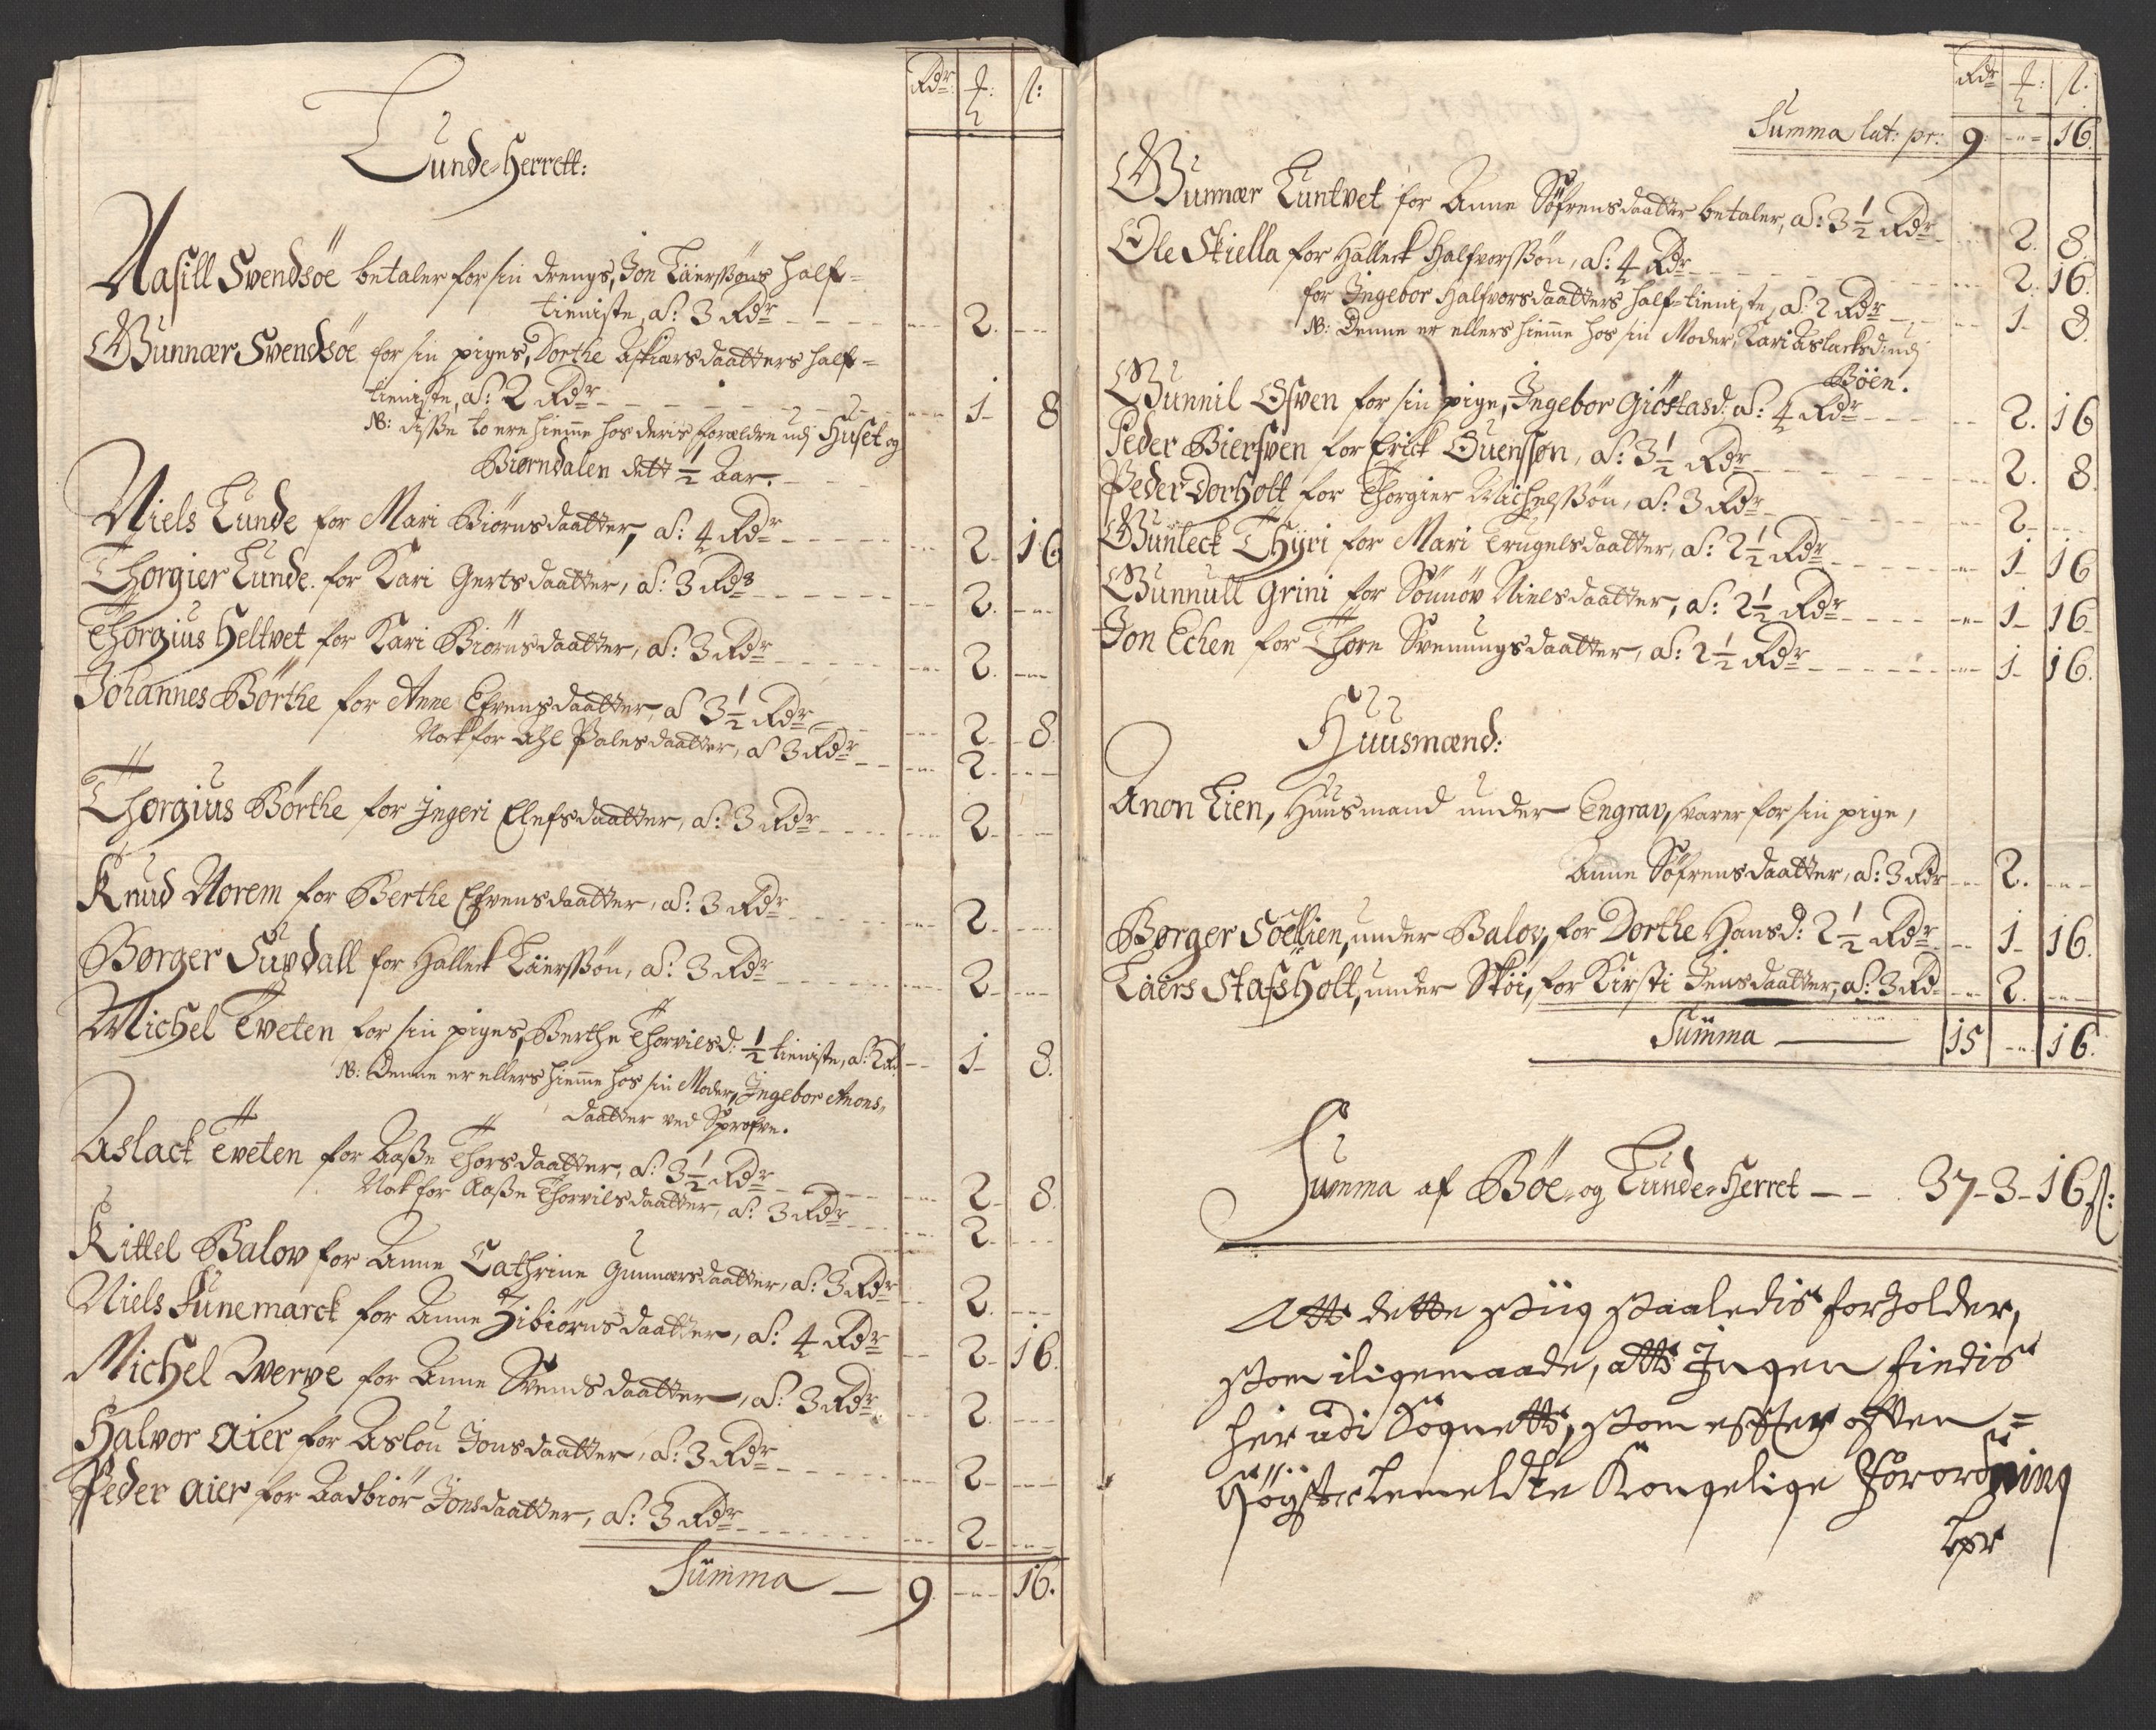 Rdr: | ƒ: | s:
Lunde-Herrett:
Aasill Svendsöe betaler for sin drengs, Jon Läerssøns half-
tieniste, a: 3 Rdr --- 2. ---
Gunnær Svendsöe for sin piges, Dorthe Asķiærsdaatters half-
tieniste, a: 2 Rdr --- 1- 8
NB: disse to ere hieme hos deris forældre udj Huset og
Biørndalen dett 1/2 Aar.
Niels Lunde for Mari Biörnsdaatter, a: 4 Rdr --- 2- 16
Thorgier Lunde for Kari Gertsdaatter, a: 3 Rdr --- 2. ---
Thorgius Heltvet for Kari Biörnsdaatter, a: 3 Rdr --- 2. ---
Johannes Börthe for Anne Efvensdaatter, a 3 1/2 Rdr --- 2- 8.
Nock for Palesdaatter, a 3 Rdr --- 2- ---
Thorgius Börthe for Ingeri Elefsdaatter, a: 3 Rdr --- 2- ---
Knud Norem for Berthe Efvensdaatter, a: 3 Rdr --- 2- ---
Børger Sundall for Halleck Läerssøn, a: 3 Rdr --- 2- ---
Michel Tveten for sin piges, Berthe Thorvilsd: 1/2 tieniste, a: 2 Rd --- 1- 8.
NB: Denne er ellers hieme hos sin Moder, Ingebor Anons-
daatter ved Sprofve.
Aslack Tveten for Aasse Thorsdaatter, a: 3 1/2 Rdr --- 2- 8.
Nock for Aasse Thorvilsdaatter, a: 3 Rdr --- 2- ---
Kittel Balov for Anne Cathrine Gunnærsdaatter, a: 3 Rdr --- 2. ---
Niels Lunemarck for Anne Zibiörnsdaatter, a: 4 Rdr --- 2- 16.
Michel Werpe for Anne Svendsdaatter, a: 3 Rdr --- 2. ---
Halvor Aier for Aslou Jonsdaatter, a: 3 Rdr --- 2- ---
Peder Aier for Aadbiör Jonsdaatter, a: 3 Rdr --- 2- ---
Summa — 9. --- 16.
Rdr | ƒ: | s:
Summa lat: pr: 9. --- 16.
Gunnær Luntvet for Anne Söfrensdaatter betaler, a: 3 1/2 Rdr --- 2. 8.
Ole Skiella for Halleck Halfvorssøn, a: 4 Rdr --- 2. 16.
for Ingebor Halfvorsdaatters half-tieniste, a: 2 Rdr --- 1- 8.
NB: Denne er ellers hieme hos sin Moder, Kari Aslacksd: udj
Böen.
Gunnil Ofven for sin pige, Ingebor Giöstasd: a: 4 Rdr --- 2. 16
Peder Biersven for Erick Ouensson, a: 3 1/2 Rdr --- 2. 8.
Peder Dorholt for Thorgier Michelssøn, a: 3 Rdr --- 2- ---
Gunleck Thyri for Mari Trugelsdaatter, a: 2 1/2 Rdr --- 1- 16
Gunnull Grini for Sönnöv Nielsdaatter, a: 2 1/2 Rdr --- 1- 16-
Jon Echen for Thore Svenungsdaatter, a: 2 1/2 Rdr --- 1- 16.
Huusmænd:
Anon Lien, Huusmand under Engrav, svarer for sin pige,
Anne Söfrensdaatter, a: 3 Rdr --- 2. ---
Børger Söetlien, under Balov, for Dorthe Hansd: 2 1/2 Rdr --- 1- 16.
Laiers Stafsholt, under Skoi, for Kirsti Jensdaatter, a: 3 Rd --- 2. ---
Summa — 15 --- 16.
Summa af Böe- og Lunde-Herret — — 37-3-16 s:
Att dette sig saaledis forholder,
som iligemaade, att Ingen findis
her udi Sognett, som effter often-
högstbemeldte Kongelige Forordning
bør